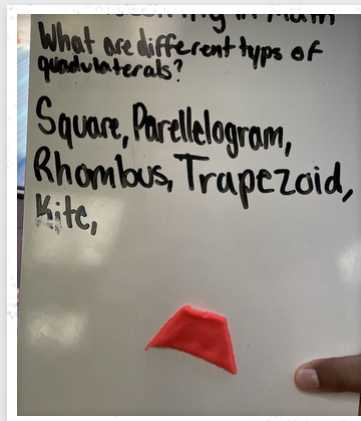 in Math
What are different typs of
quadulaterals?
Square, Parellelogram,
Rhombus, Trapezoid,
Kite,